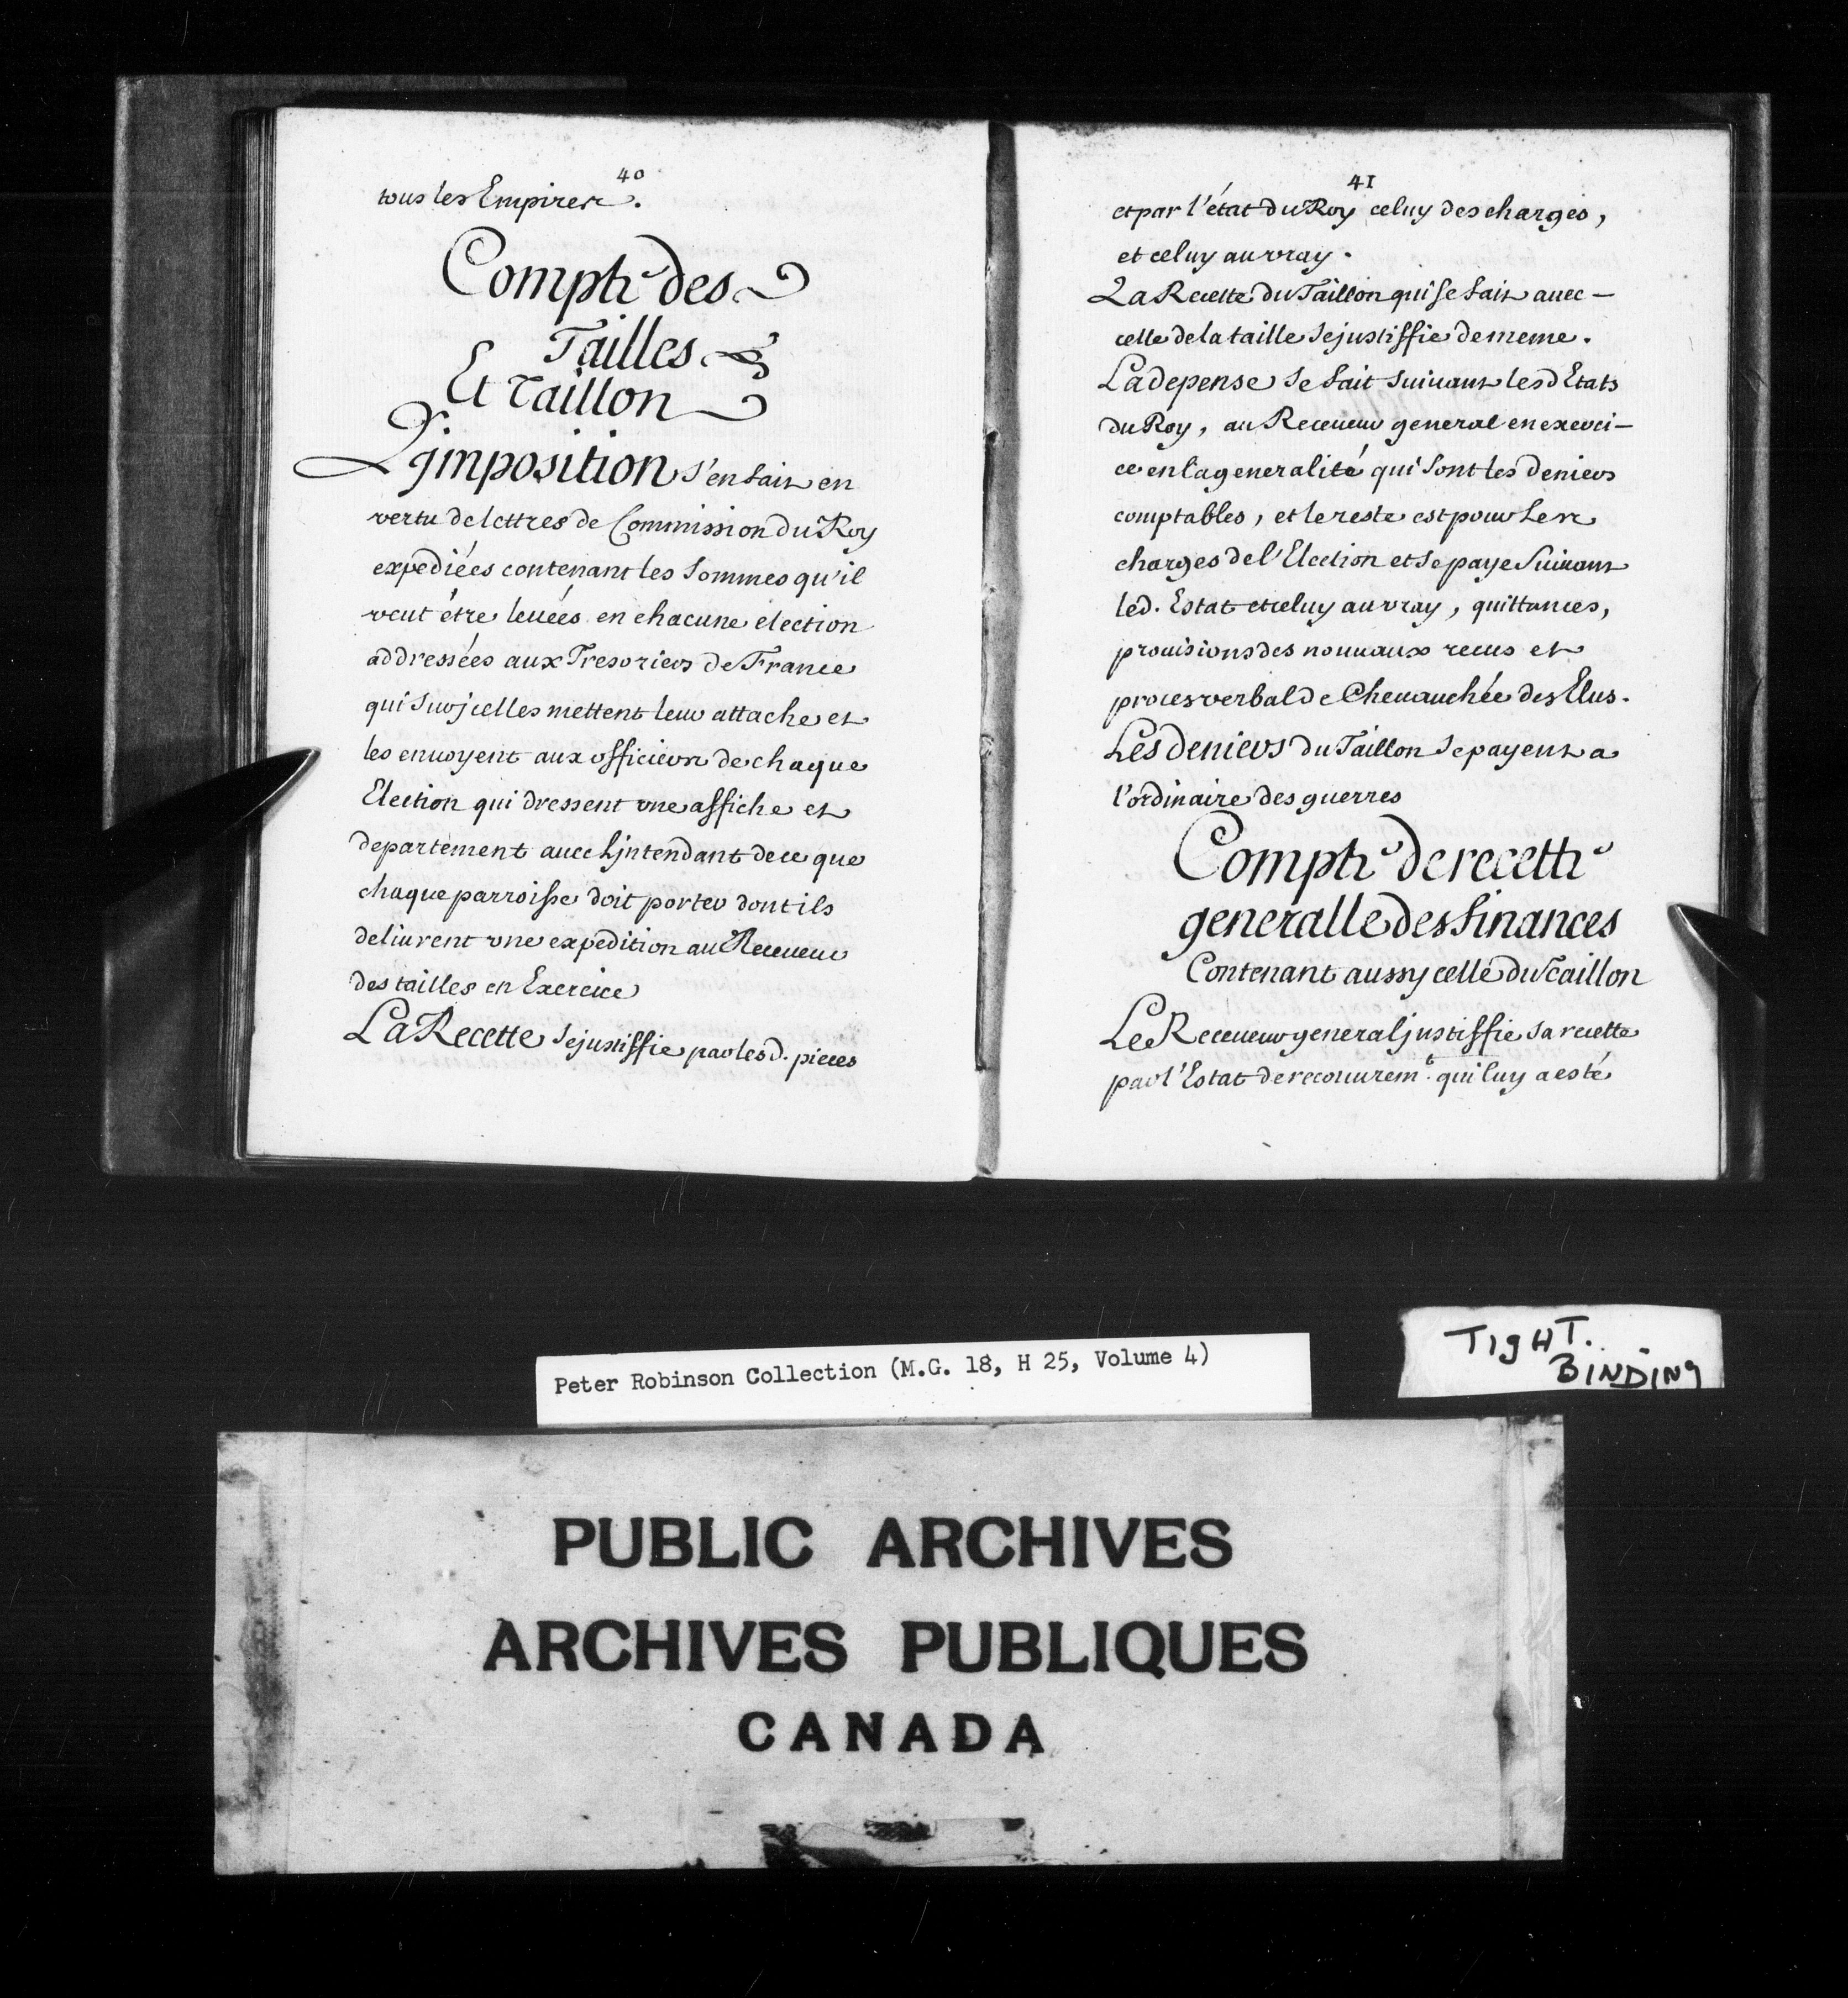 40
tous les Empires.
Compte des
Tailles
Et Taillon
L'jmposition s'en fait en
vertu de lettres de Commission du Roy
expediées contenant les sommes qu'il
veut être leuées en chacune election
addressées aux Tresoriers de France
qui sur jcelles mettent leur attache et
les enuoyent aux officiers de chaque
Election qui dressent vne affiche et
departement auec L'jntendant de ce que
chaque parroisse doit porter dont ils
deliurent vne expedition au Receueur
des tailles en Exercice
La Recette se justiffie par les d. pieces
41
et par l'état du Roy celuy des charges,
et celuy au vray.
La Recette du Taillon qui se fait auec -
celle de la taille se justiffie de meme.
La depense se fait suiuant lesd Etats
du Roy, au Receueur general en exerci-
ce en la generalité qui sont les deniers
comptables, et le reste est pour les
charges de l'Election et se paye suiuant
led. Estat et celuy au vray, quittances,
prouisions des nouueaux receus et
proces verbal de Cheuauchée des Elus.
Les deniers du Taillon se payent a
l'ordinaire des guerres
Compte de recette
generalle des finances
Contenant aussy celle du Taillon
Le Receueur general justiffie sa recette
par l'Estat de recouurem.t qui luy a esté
Peter Robinson Collection (M.G. 18, H 25, Volume 4)
TIGHT.
BINDING
PUBLIC ARCHIVES
ARCHIVES PUBLIQUES
CANADA